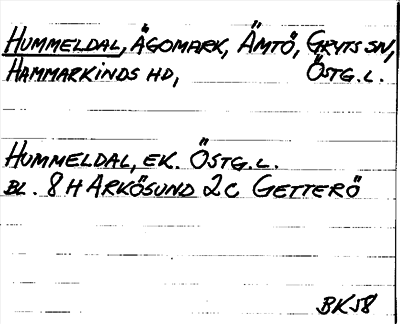 HUMMELDAL, ÄGOMARK, ÄMTÖ, GRYTS SN,
HAMMARKINDS HD, ÖSTG.L.
HUMMELDAL, EK. ÖSTG.L.
BL. 8H ARKÖSUND 2C GETTERÖ
BK58